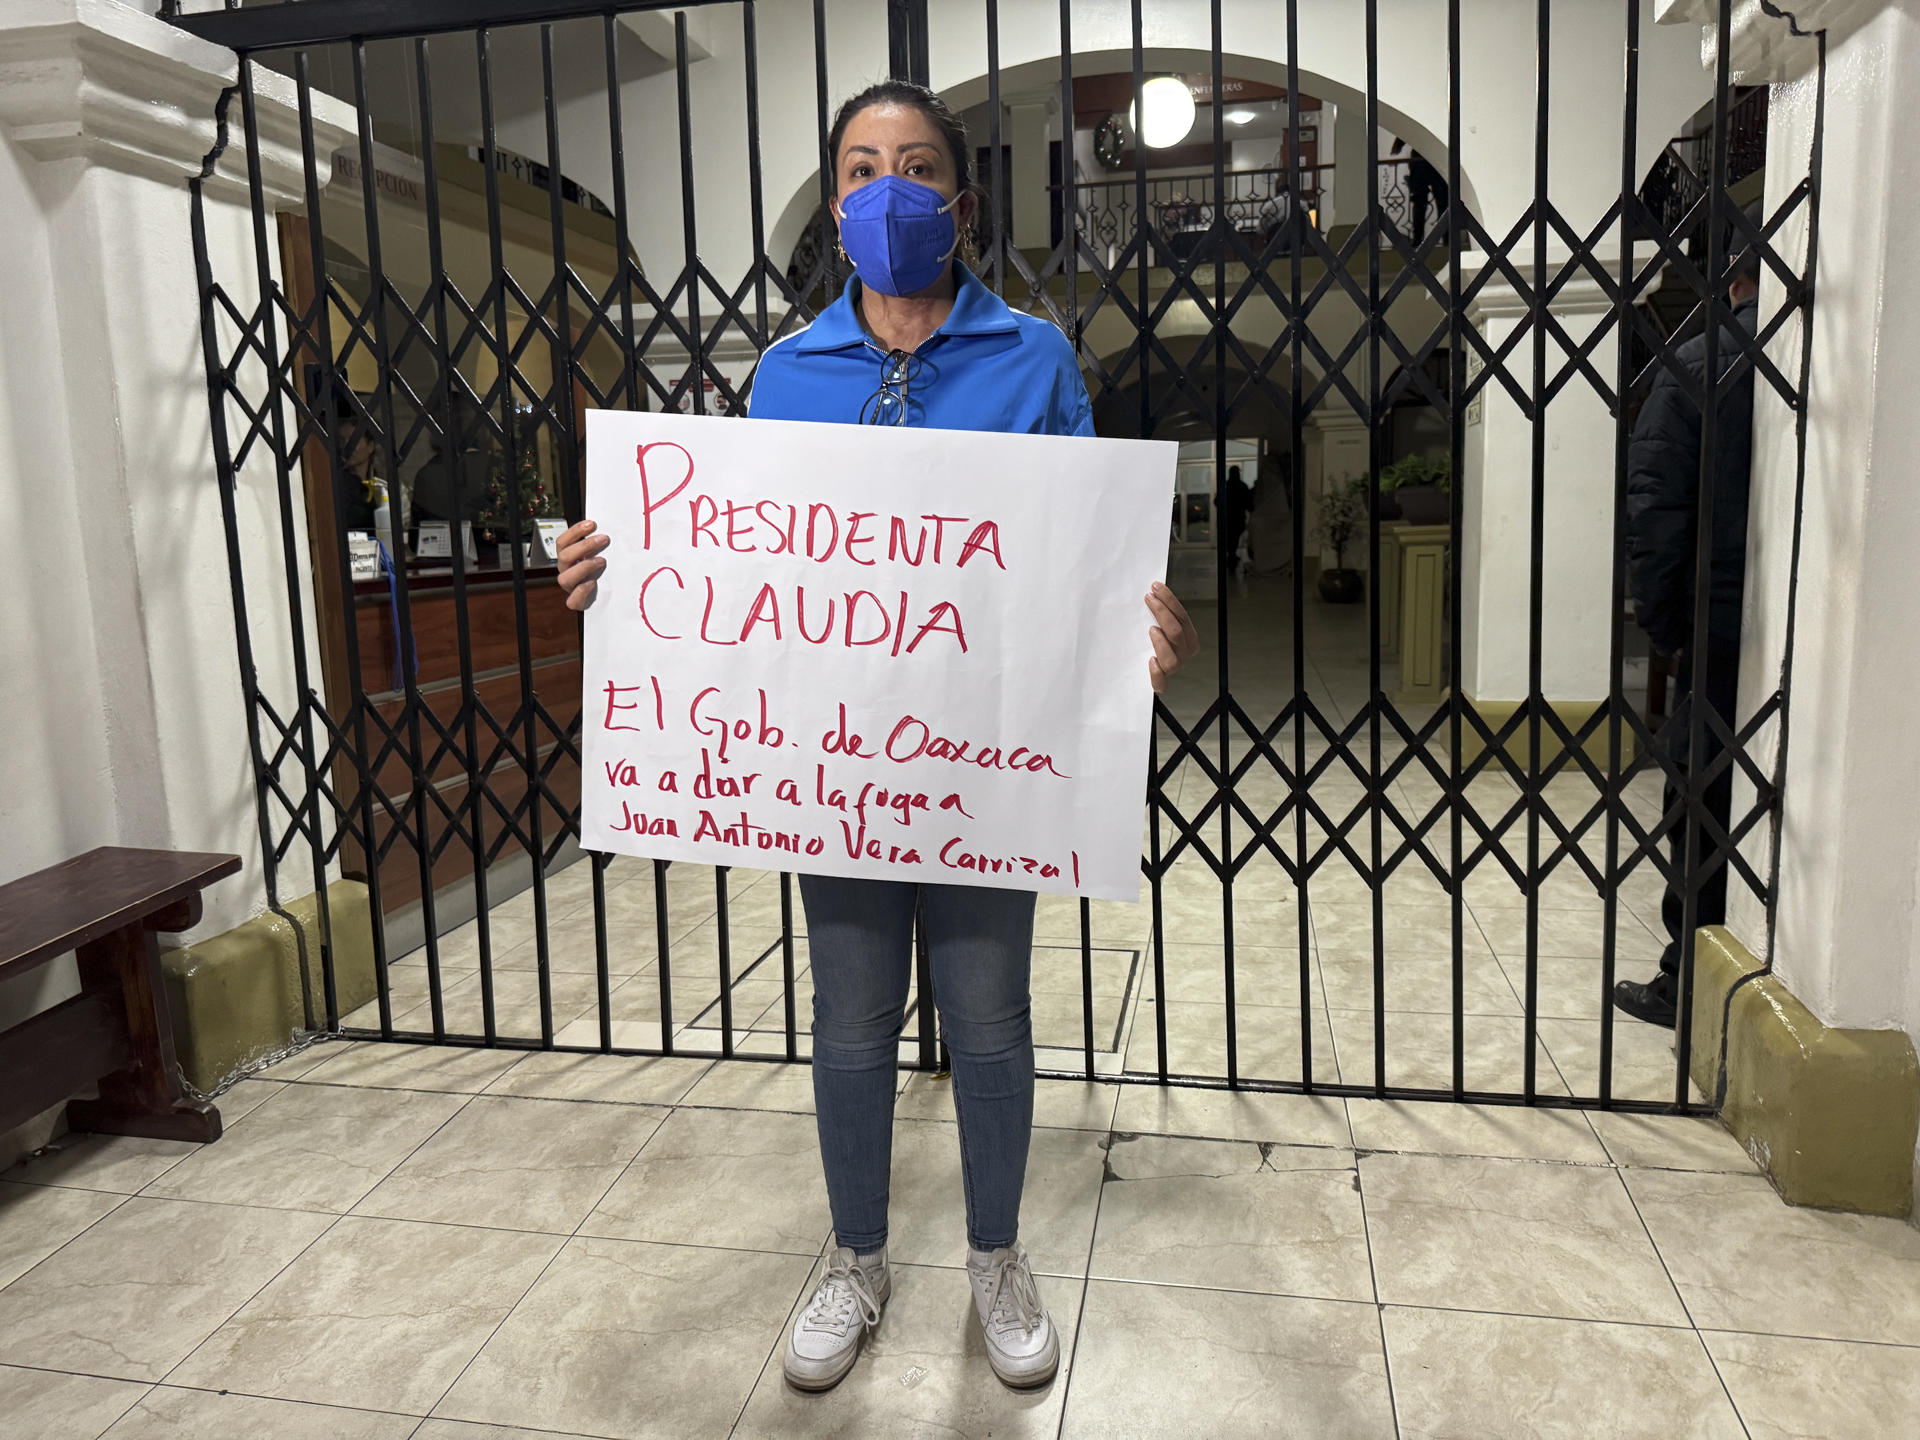 RECEPCIÓN
ENFERMERAS
PRESIDENTA
CLAUDIA
El Gob. de Oaxaca
va a dar a la fuga a
Juan Antonio Vera Carrizal